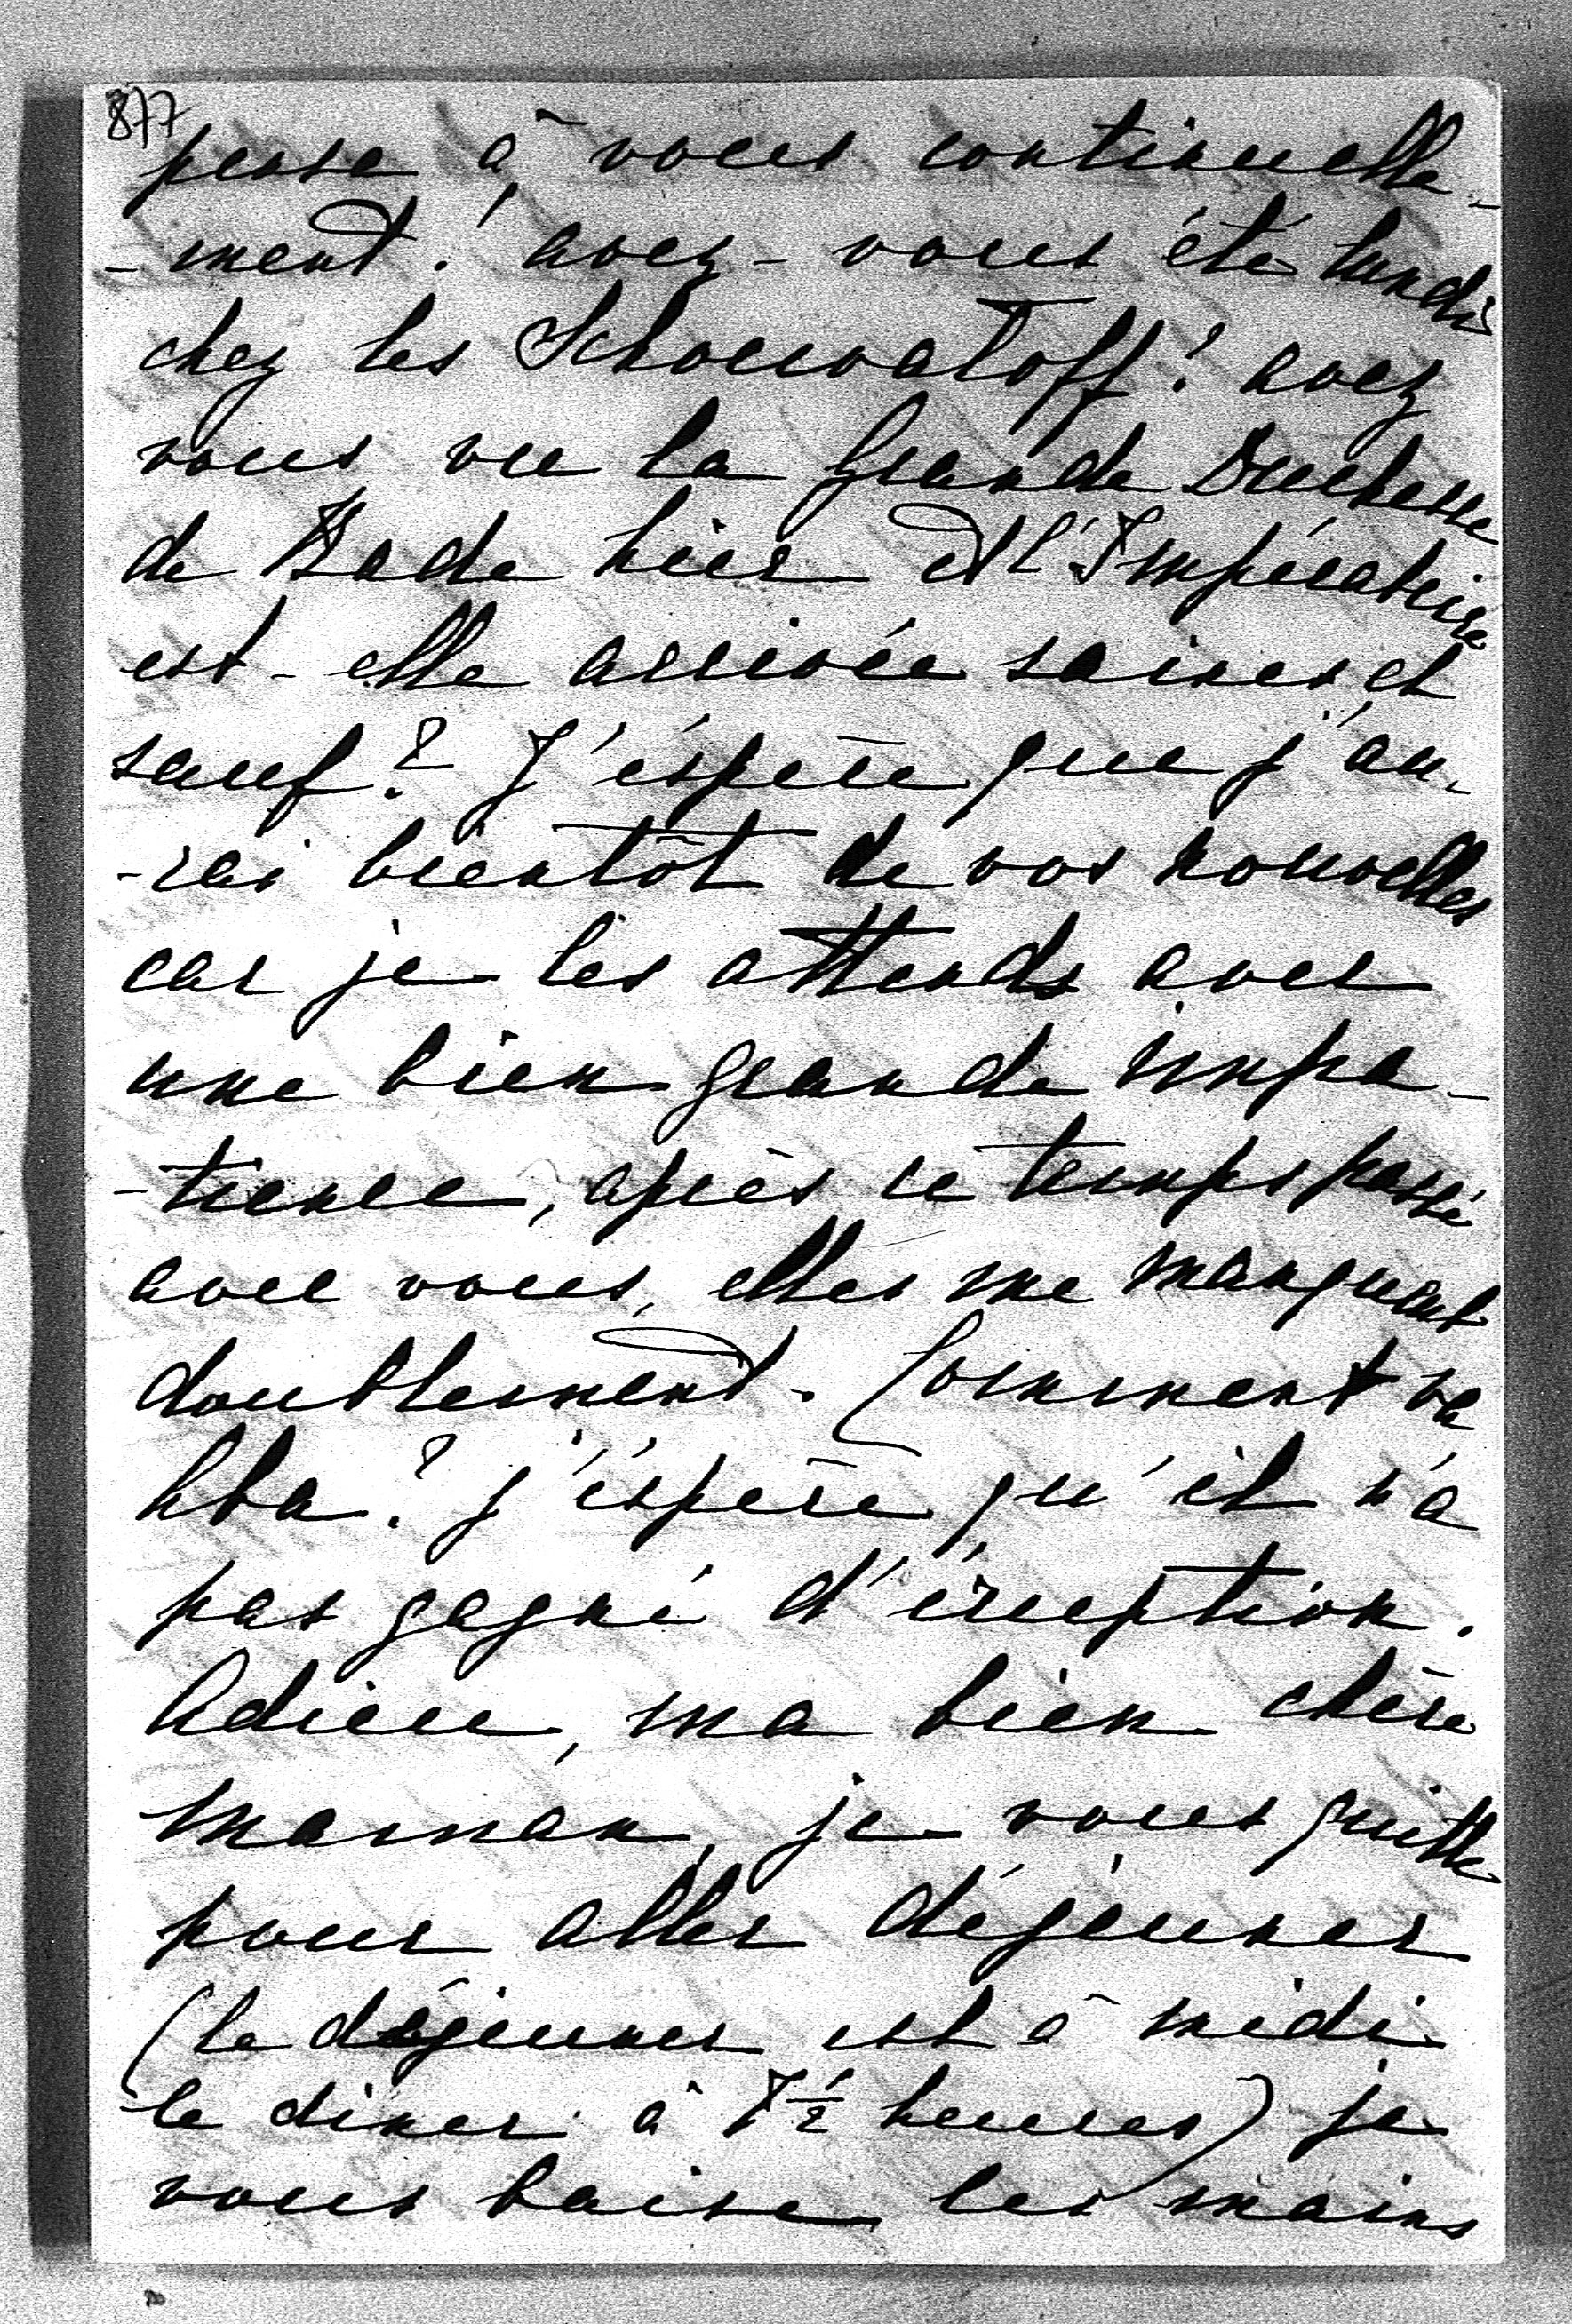 877
pense à vous continuelle-
-ment! avez-vous été lundi
chez les Schouvaloff? avez
vous vu la Grande Duchesse
de Bade hier et l'Impératrice
est-elle arrivée saines et
sauf? J'éspère que j'au-
-rai bientôt de vos nouvelles
car je les attends avec
une bien grande impa-
-tience, après ce temps passé
avec vous, elles me manquent
doublement. Comment va
j'éspère qu'il n'a
pas gagné d'éruption.
Adieu, ma bien chère
maman, je vous quitte
pour aller déjeuner
(le déjeuner est à midi
le diner à 7½ heures) je
vous baise les mains